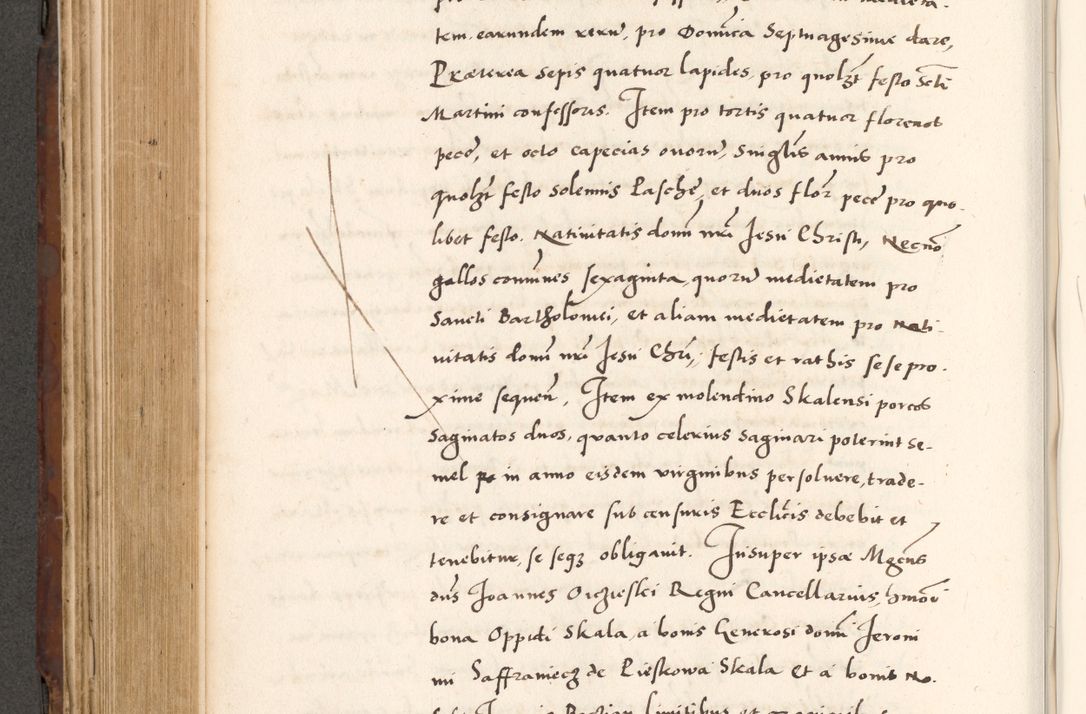 tem. earundem rerũ, pro Domĩca Septuagesime dare,
Præterea sepis quatuor lapides, pro quolzt festo Scti
Martini confessoris. Item pro tortis quatuor florenos
pecẽ, et octo capecias ovorũ, singlis annis pro
quolzt festo solennis Paschẽ, et duos flor pecẽ pro quo-
libet festo. Nativitatis domĩ nrĩ Jesu Christi, Necnõ
gallos comũnes sexaginta, quorũ medietatem pro
Sancti Bartholomei, et aliam medietatem pro Nati-
vitatis domĩ nrĩ Jesu Chrĩ, festis et rathis se se pro-
xime sequeñ, Item ex molendino Skalensi porcos
saginatos duos, quanto celerius saginari poterint se-
mel in anno eisdem virginibus persoluere, trade-
re et consignare sub censuris Ecclicis debebit et
tenebitur, se seqz obligauit. Insuper ipse Mgcus
dns Joannes Oczieski Regni Cancellarius, hmõi
bona Oppidi Skala, a bonis Generosi domĩ Jeroni
mi Saffraniecz de Pieskowa Skala et a bonis No-